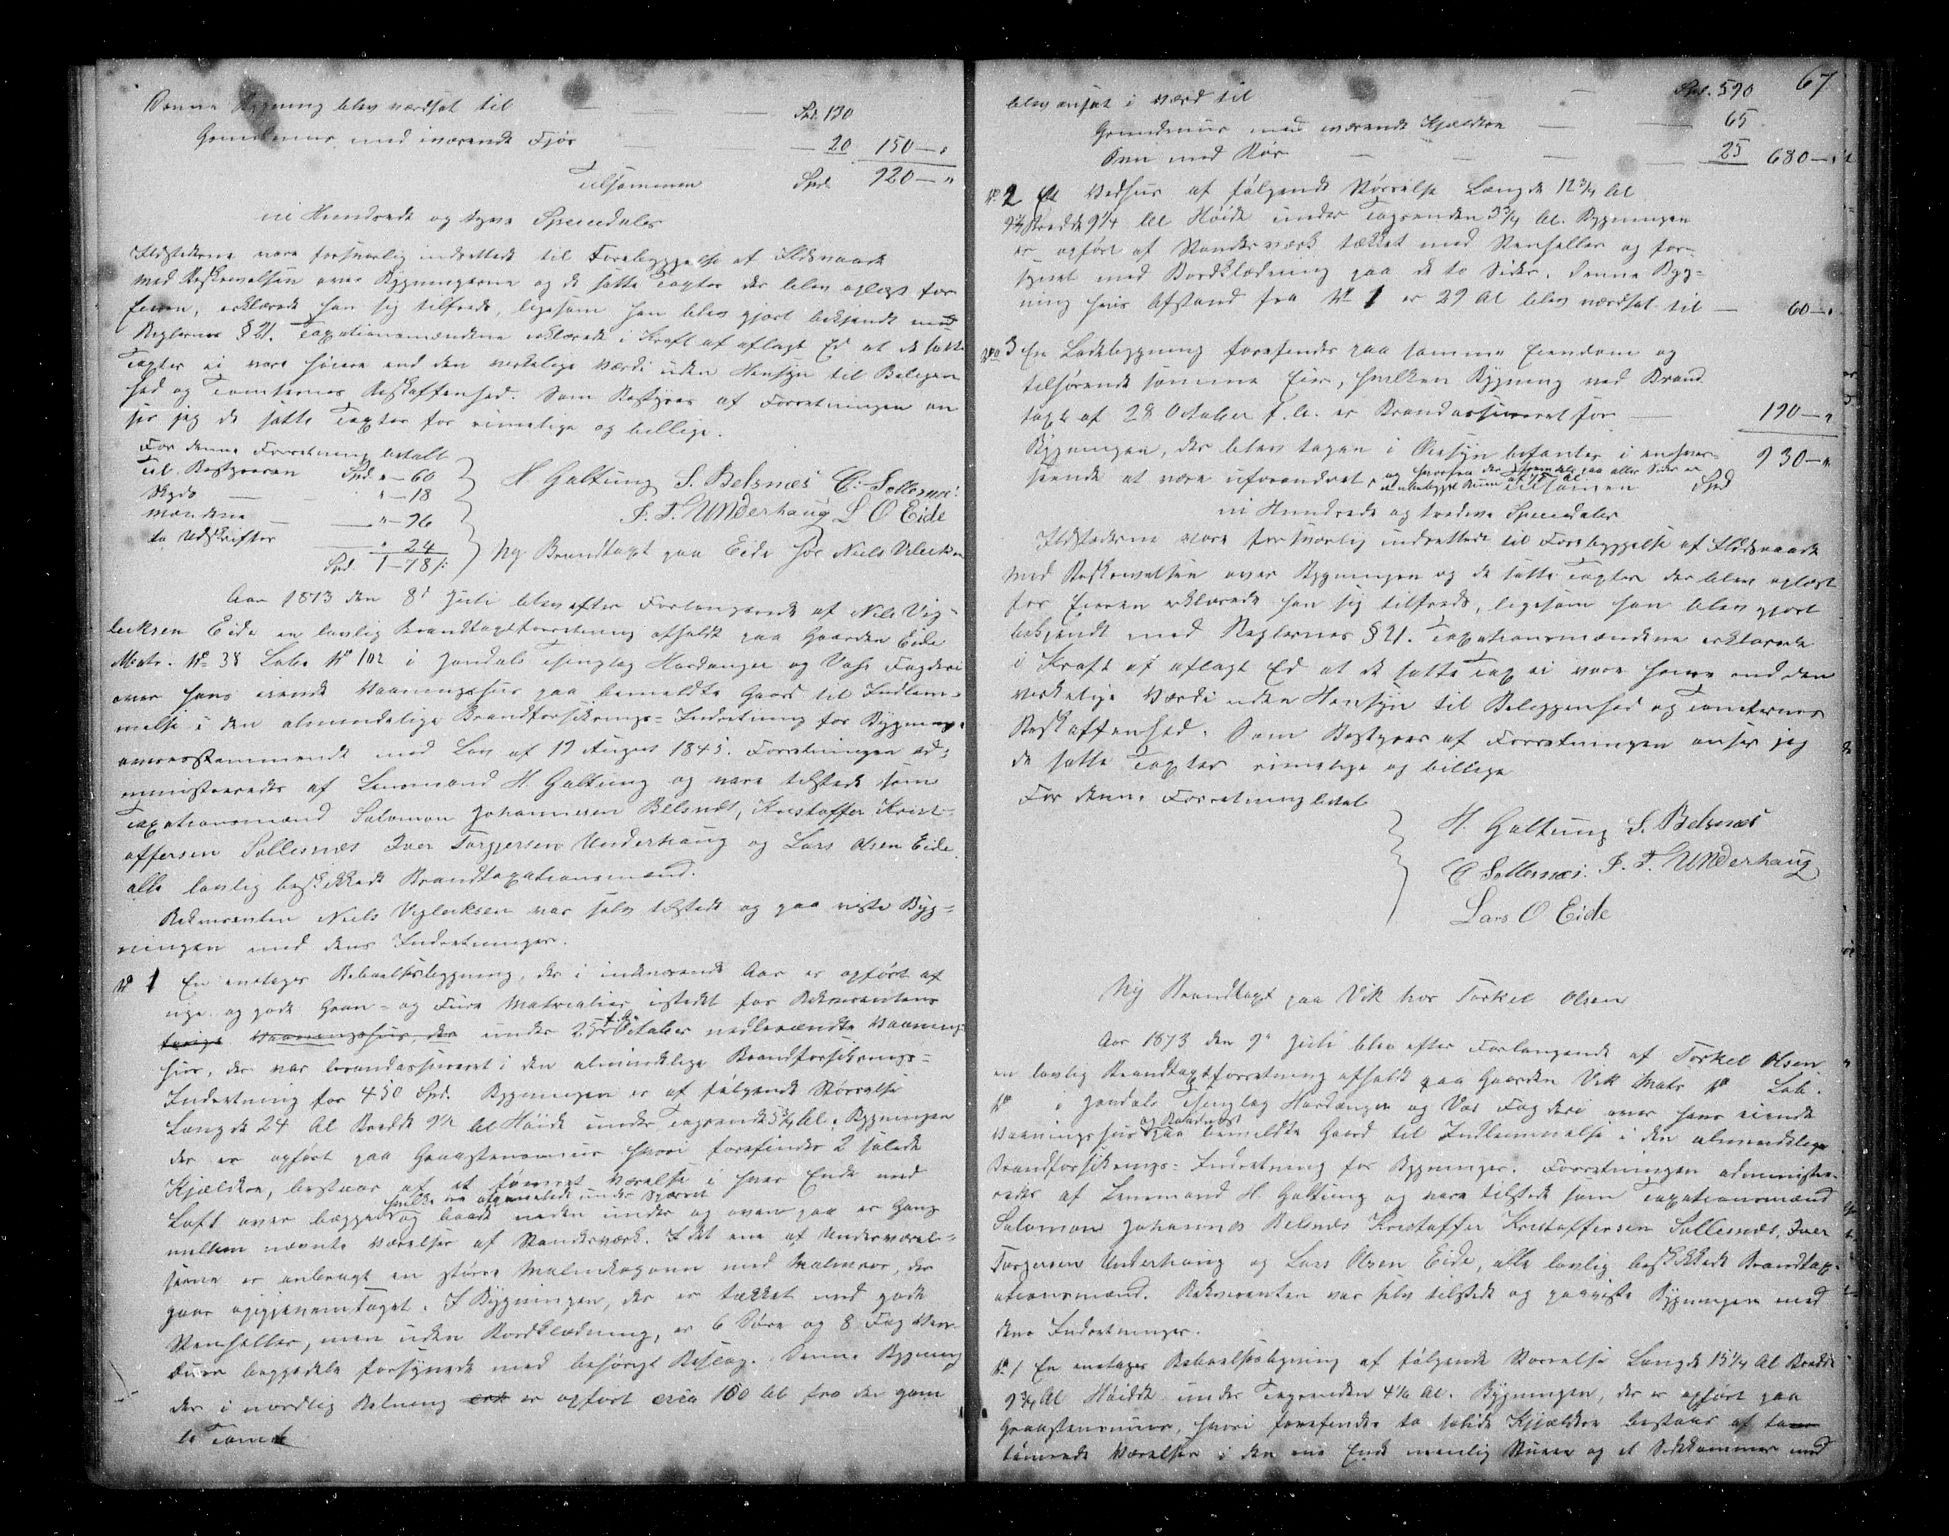 Denne Bygning blev værdsat til — — Spd. 130
Grundmur med iværende Fjøs — — 20 150 — "
Tilsammen Spd. 920 — "
ni Hundrede og tyve Speciedaler
Ildstederne vare forsvarlig indrettede til Forebyggelse af Ildsvaade
Med Beskrivelsen over Bygningerne og de satte Taxter der blev oplæst for
Eieren, erklærede han sig tilfreds, ligesom han blev gjort bekjendt med
Reglernes § 21. Taxationsmændene erklærede i Kraft af aflagt Ed at de satte
Taxter ei vare høiere end den virkelige Værdi uden Hensyn til Beliggen
hed og Tomternes Beskaffenhed. Som Bestyrer af Forretningen an
ser jeg de satte Taxter for rimelige og billige.
For denne Forretning betalt
Til Bestyreren Spd. " — 60
Skyds — " — 18
Mændene — " — 96
to Udskrifter — " 24
Spd. 1 — 78 /:
H Galtung S. Belsnæs C. Sollesnæs.
I. T. Underhaug L O Eide
Ny Brandtaxt paa Eide hos Niels Vilecksen
Aar 1873 den 8de Juli blev efter Forlangende af Niels Vig-
lecksen Eide en lovlig Brandtaxtforretning afholdt paa Gaarden Eide
Matr. No 38 Løbe No 102 i Jondals Thinglag Hardanger og Voss Fogderi
over hans eiende Vaaningshus paa bemeldte Gaard til Indlem-
melse i den almindelige Brandforsikrings-Indretning for Bygninger
overensstemmende med Lov af 19 August 1845. Forretningen ad-
ministreredes af Lensmand H. Galtung og vare tilstede som
Taxationsmænd Salomon Johannesen Belsnæs, Kristoffer Krist-
offersen Sollesnæs Iver Torgersen Underhaug og Lars Olsen Eide
alle lovlig beskikkede Brandtaxationsmænd.
Rekvirenten Niels Viglecksen var selv tilstede og paa viste Byg-
ningen med dens Indretninger.
No 1 En enetages Beboelsesbygning, der i indeværende Aar er opført af
nye og gode Gran- og Furu Materialier istedet for Rekvirentens
forrige Vaaningshus, der under 25de October f.A. nedbrændte Vaanings
hus, der var brandassureret i den almindelige Brandforsikrings-
Indretning for 450 Spd. Bygningen er af følgende Størrelse
Længde 24 Al Bredde 9½ Al Høide under Tagrende 5¾ Al. Bygningen
der er opført paa Graastensmur hvori forefindes 2 solide
Kjældere, bestaar af et tømret Værelse i hver Ende med
Loft over begge og baade neden under og oven paa er Gang
mellem nævnte Værelser af Stenderværk. I det ene af Underværel-
serne er anbragt en større Malmkogeovn med Malmrør, der
gaar op igjennem Taget. I Bygningen, der er tækket med gode
Stenheller, men uden Bordklædning, er 6 Døre og 8 Fag Vin-
duer beggedele forsynede med behørigt Beslag. Denne Bygning
der i nordlig Retning er opført circa 100 Al fra den gam
le Tomt
67
blev ansat i Værd til — — Spd. 590
Grundmur med iværende Kjældere — — 65
Ovn med Rør — — — 25 680 — "
No 2 Et Vedhus af følgende Størrelse Længde 12¾ Al
Bredde 9¼ Al Høide under Tagrenden 3¾ Al. Bygningen
er opført af Stenderværk tækket med Stenheller og for-
synet med Bordklædning paa de to Sider. Denne Byg-
ning hvis Afstand fra No 1 er 29 Al blev værdsat til — 60 — "
No 3 En Ladebygning forefindes paa samme Eiendom og
tilhørende samme Eier, hvilken Bygning ved Brand
taxt af 28 October f.A. er Brandassureret for — 190 — "
Bygningen, der blev tagen i Øiesyn befantes i enhver-
seende at være uforandret, og
Tilsamen Spd 930 — "
ni Hundrede og tredive Speciedaler
Ildstederne vare forsvarlig indrettede til Forebyggelse af Ildsvaade
Med Beskrivelsen over Bygningen og de satte Taxter der blev oplæst
for Eieren erklærede han sig tilfreds, ligesom han blev gjort
bekjendt med Reglernes § 21. Taxationsmændene erklærede
i Kraft af aflagt Ed at de satte Tax ei vare høiere end den
virkelige Værdi uden Hensyn til Beliggenhed og Tomternes
Beskaffenhed. Som Bestyrer af Forretningen anser jeg
de satte Taxter rimelige og billige
For denne Forretning betal
H. Galtung S. Belsnæs
C Sollesnæs. I. T. Underhaug
Lars O Eide
Ny Brandtaxt paa Vik hos Torkel Olsen
Aar 1873 den 9de Juli blev efter Forlangende af Torkel Olsen
en lovlig Brandtaxtforretning afholdt paa Gaarden Vik Matr No Løb.
No i Jondals Thinglag Hardanger og Vos Fogderi over hans eiende
Vaaningshus paa bemeldte Gaard til Indlemmelse i den almindelige
Brandforsikrings-Indretning for Bygninger. Forretningen administre-
redes af Lensmand H. Galtung og vare tilstede som Taxationsmænd
Salomon Johannes Belsnæs Kristoffer Kristoffersen Sollesnæs, Iver
Torgersen Underhaug og Lars Olsen Eide, alle lovlig beskikkede Brandtax-
ationsmænd. Rekvirenten var selv tilstede og paaviste Bygningen med
dens Indretninger.
No 1 En enetages Beboelsesbygning af følgende Størrelse Længde 15¼ Al Bredde
9¾ Al Høide under Tagrenden 4½ Al. Bygningen, der er opført paa
Graastensmur, hvori forefindes to solide Kjældere bestaar af
tømrede Værelser i den ene Ende nemlig Stuen og et Sidekammer med